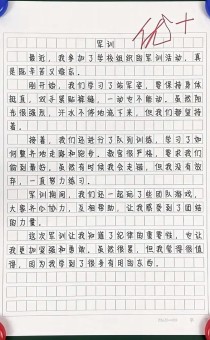 优+
军训
最近，我参加了学校组织的军训活动，真
是既辛苦又难忘。
刚开始，我们学习了站军姿，要保持身体
挺直，双手紧贴裤缝，一动也不能动。虽然阳
光很强烈，汗水不停地流下来，但我们都坚持
着。
接着，我们还进行了队列训练，学习了如
何整齐地走路和跑步。教官很严格，要求我们
做到最好。虽然有时候我会走错，但我没有放
弃，一直努力练习。
军训期间，我们还一起玩了些团队游戏，
大家齐心协力，互相帮助，让我感受到了团结
的力量。
这次军训让我知道了纪律的重要性，也让
我更加坚强和勇敢。虽然很累，但我觉得很值
得，因为我学到了很多有用的东西。